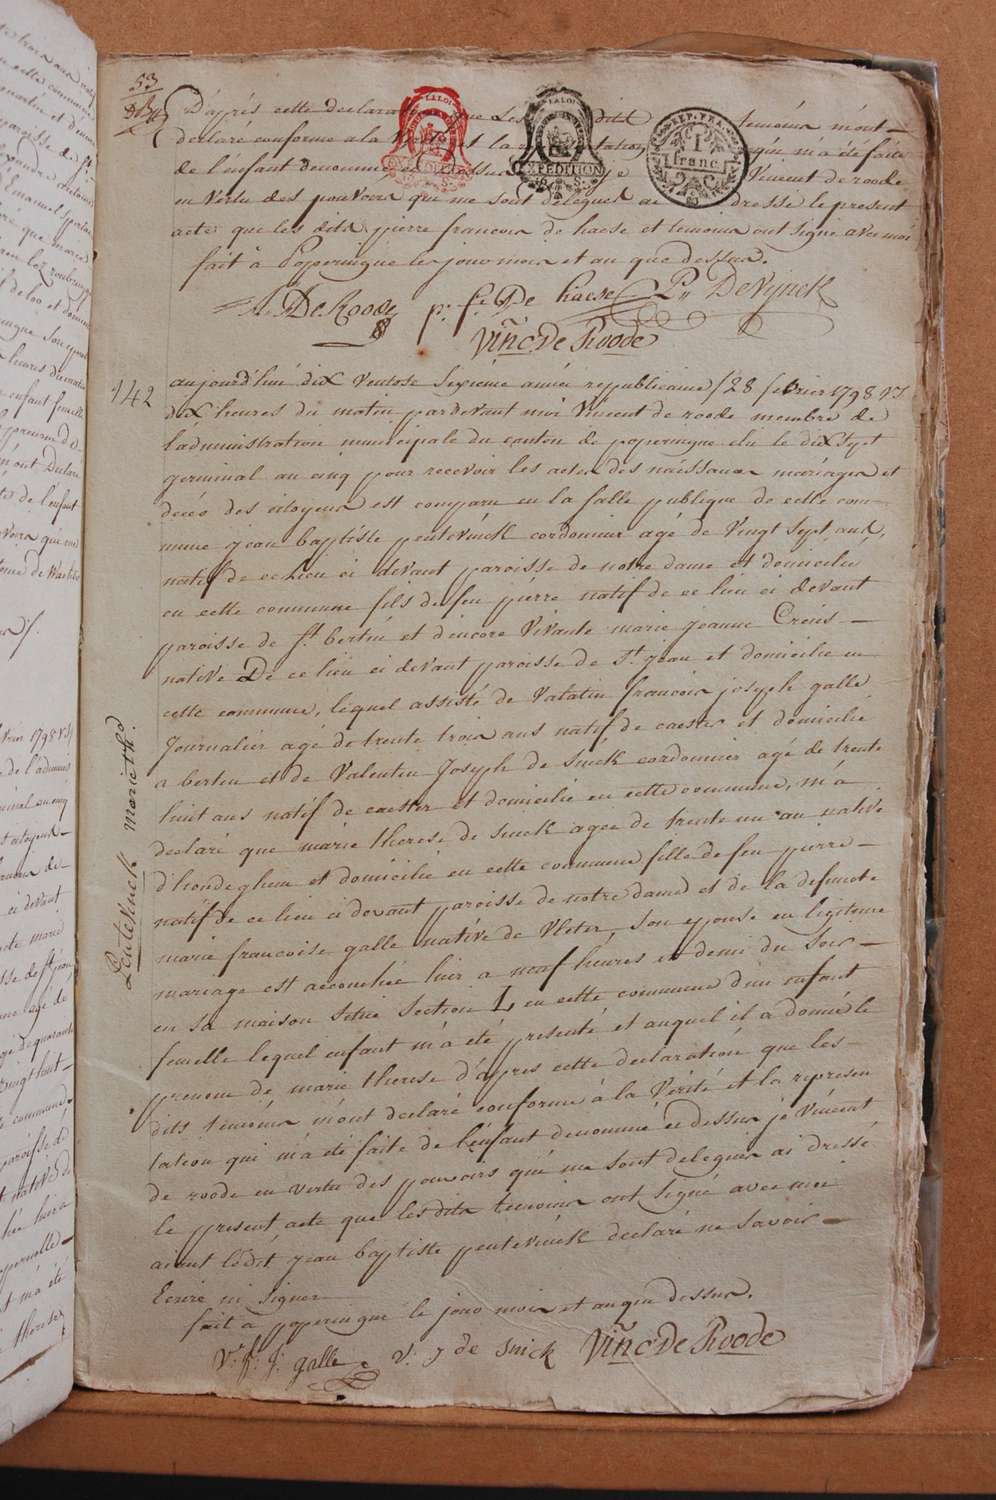 53
D'après cette declaration que Les dits temoins mont
declaré conforme a la Vérité et la representation qui m'a été faite
de l'enfant denommé ci dessus je Vincent de roode
en Vertu des pouvoirs qui me sont delegués ai dresse le present
acte que les dits pierre francois de haese et temoins ont signe avec moi
fait à Poperingue les jour mois et an que dessus.
LA LOI
EXPEDITION
LA LOI
EXPEDITION
REP. FRA.
1
franc
A. De Roode p. f. De haese P. DeVijnck
Vinc. De Roode
142
aujourd'hui dix Ventose Sixieme année republicaine /28 fevrier 1798 VS/
dix heures du matin pardevant moi Vincent de roode membre de
l'administration municipale du canton de poperingue elu le dix sept
germinal an cinq pour recevoir les actes des naissances mariages et
décés des citoyens est comparu en la salle publique de cette com-
mune jean baptiste peutevinck cordonnier agé de Vingt Sept ans,
natif de ce lieu ci devant paroisse de notre dame et domicilié
en cette commune fils de feu pierre natif de ce lieu ci devant
paroisse de St. bertin et d'encore Vivante marie jeanne Creus -
native De ce lieu ci devant paroisse de St. jean et domicilie en
cette commune, lequel assisté de Valatin francois joseph galle
Journalier agé de trente trois ans natif de caester et domicilie
a berten et de Valentin Joseph de Snick cordonnier agé de trente
huit ans natif de caester et domicilie en cette commune, m'a
declaré que marie therese de Snick agee de trente un an native
d'hondeghem et domicilie en cette commune fille de feu pierre -
natif de ce lieu ci devant paroisse de notre dame et de la defuncte
marie francoise galle native de Vleter, son epouse en legitime
mariage est accouchée hier a neuf heures et demi du Soir -
en sa maison Situe Section L en cette commune d'un enfant
femelle lequel enfant m'a été presenté et auquel il a donné le
prenom de marie therese d'après cette declaration que les
dits temoins m'ont declaré conforme à la Vérité et la represen
tation qui m'a été faite de l'enfant denommé ci dessus je Vincent
de roode en vertu des pouvoirs qui me sont delegues ai dressé
le present acte que les dits temoins ont signé avec moi
aiant ledit jean baptiste peutevinck declaré ne savoir -
Ecrire ni signer
fait à poperingue le jour mois et an que dessus.
V. f. j. galle V. j de snick Vinc De Roode
Peutevinck marie th.